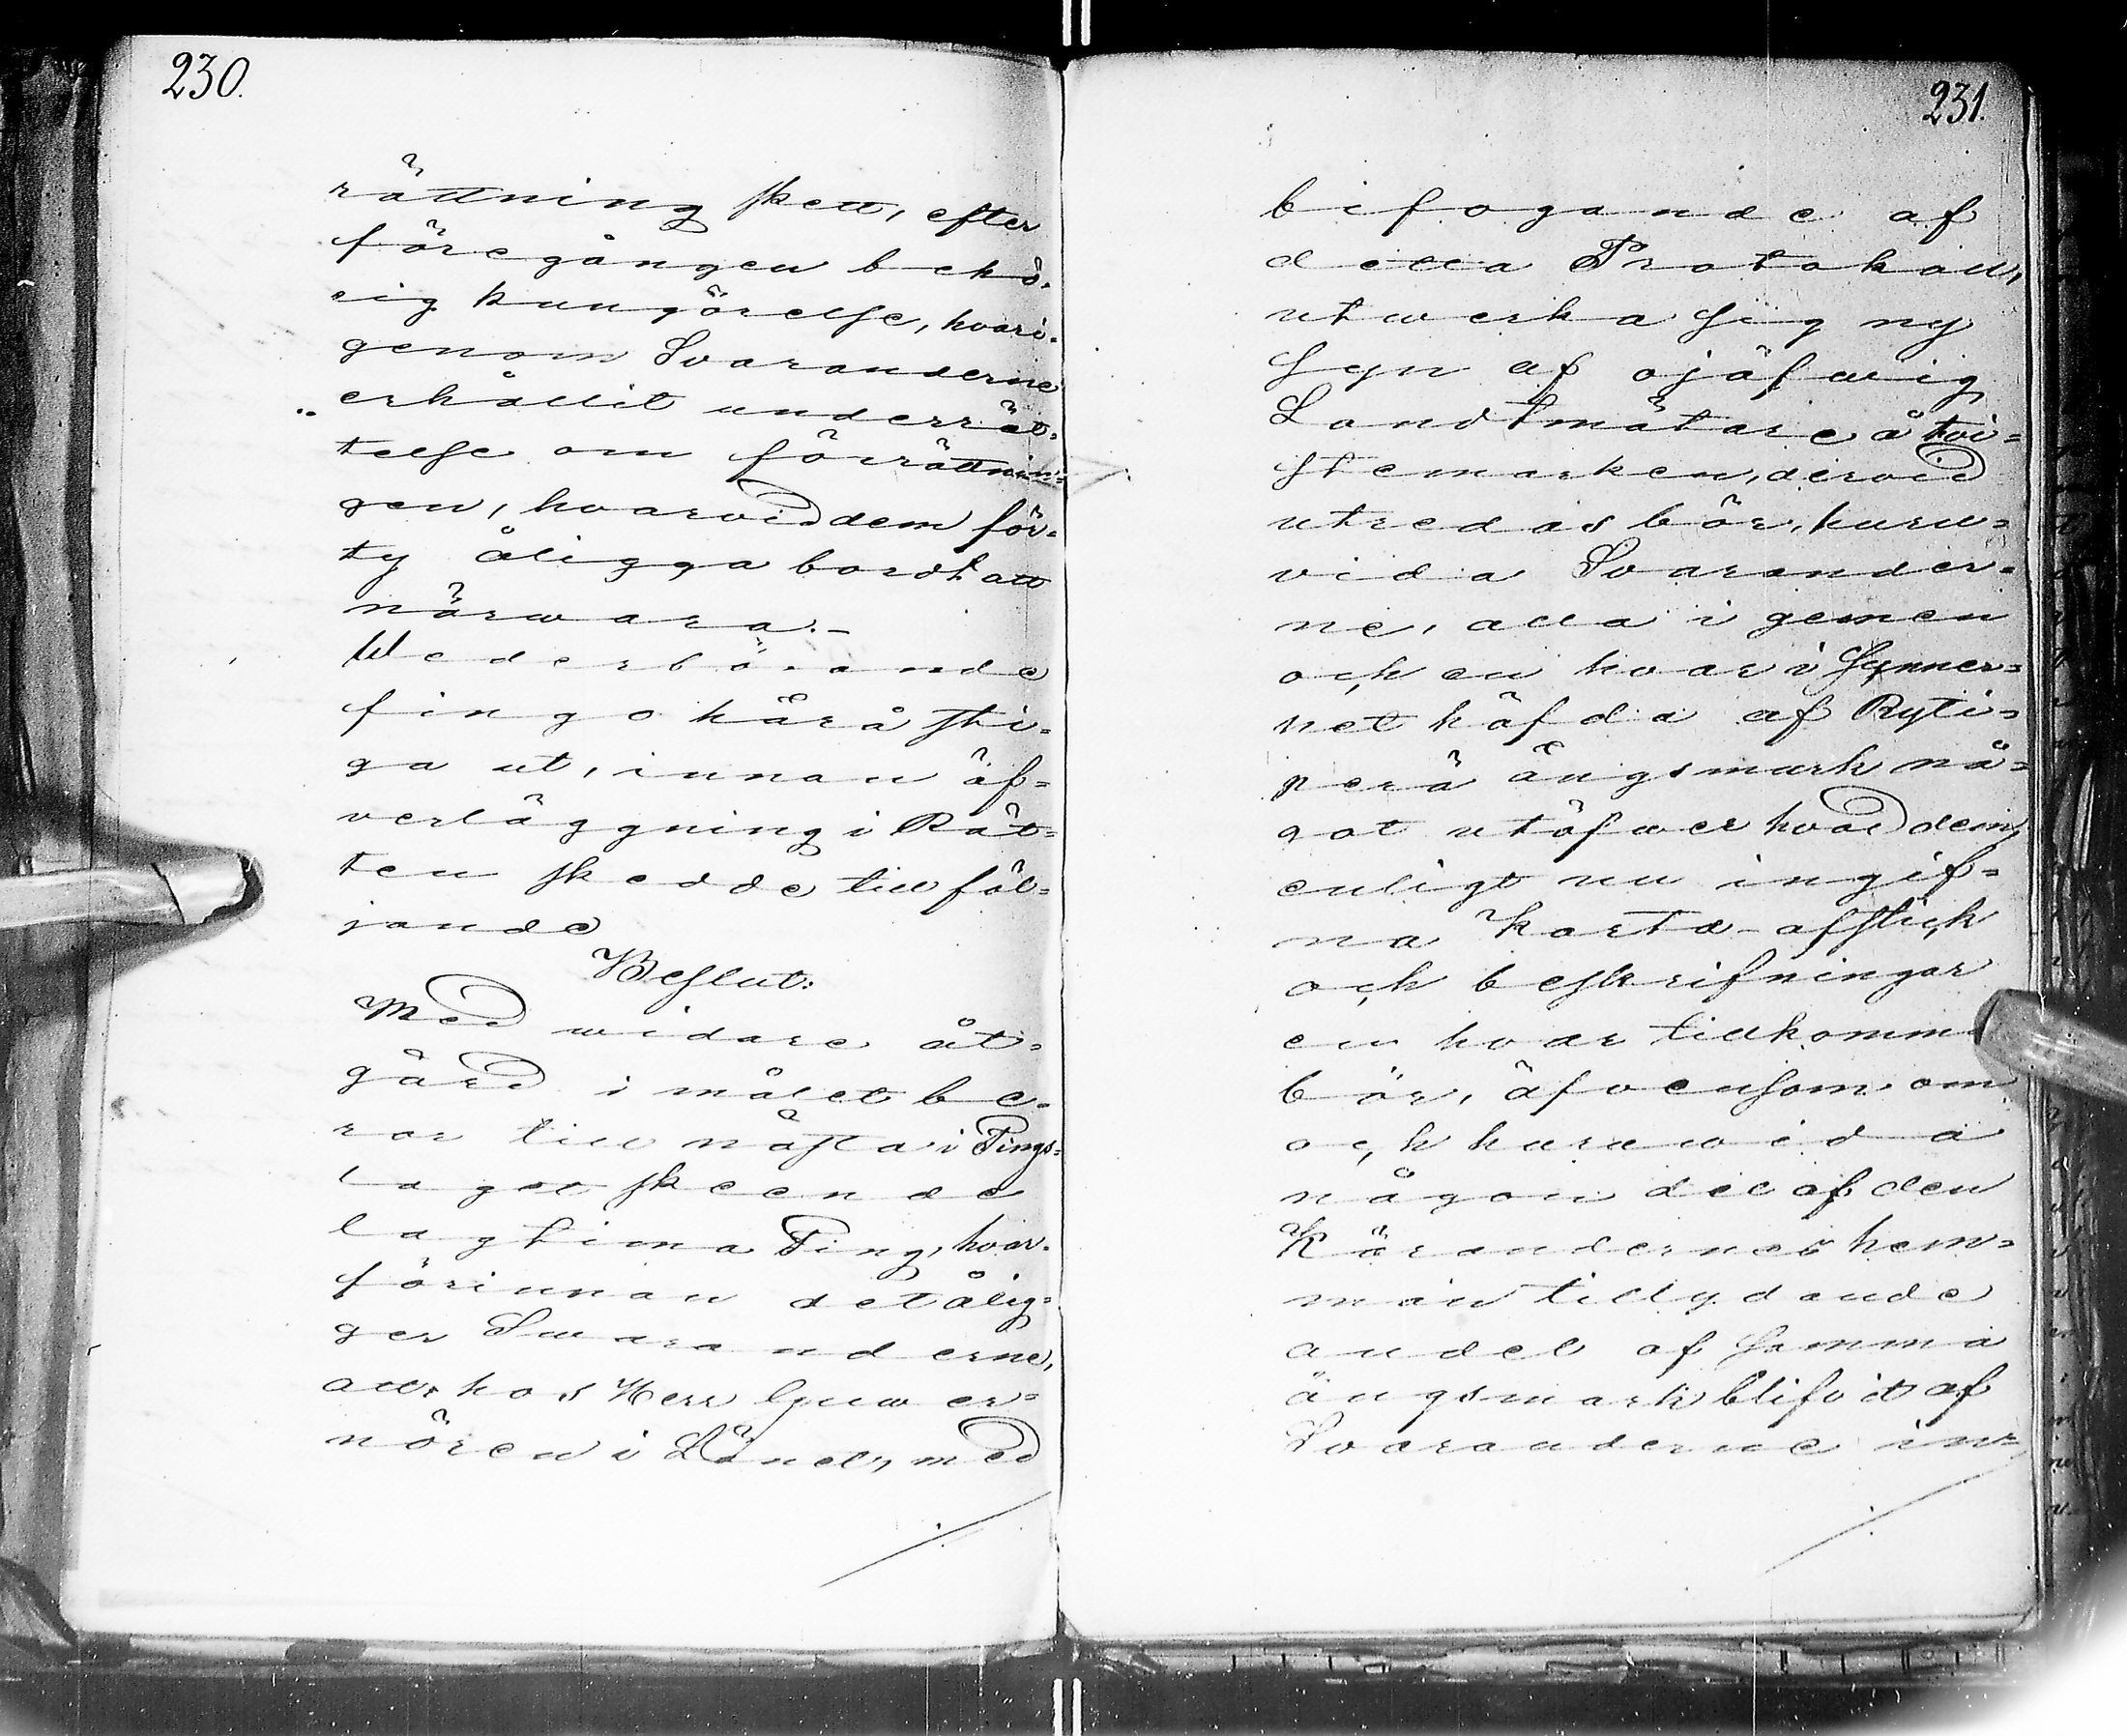 230.
rättning skett, efter
föregången behö-
rig kungörelse, hvari-
genom Svaranderne
erhållit underrät-
telse om förrättnin-
gen, hvarvid dem för-
ty åligga bordt att
närwara.-
Wederbörande
fingo härå sti-
ga ut, innan öf-
verläggning i Rät-
ten skedde till föl-
jande
Beslut:
Med widare åt-
gärd i målet be-
ror till nästa i Tings-
laget skeende
lagtima Ting, hvar-
förinnan det ålig-
ger Swaranderne,
att hos Herr Guwer-
nören i Länet, med
231.
bifogande af
detta Protokoll,
utwerka sig ny
syn af ojäfwig
Landtmätare å tvi-
stemarken, dervid
utredas bör, huru-
vida Svarander-
ne, alla i gemen
och en hvar i synner-
het häfda af Ryti-
perä ängsmark nå-
got utöfwer hvad dem,
enligt nu ingif-
na Karta-afstick
och beskrifningar
en hvar tillkomma
bör, äfvensom om
och huruwida
någon del af den
Kärandernes hem-
man tillydande
andel af samma
ängsmark blifvit af
Svaranderne in-